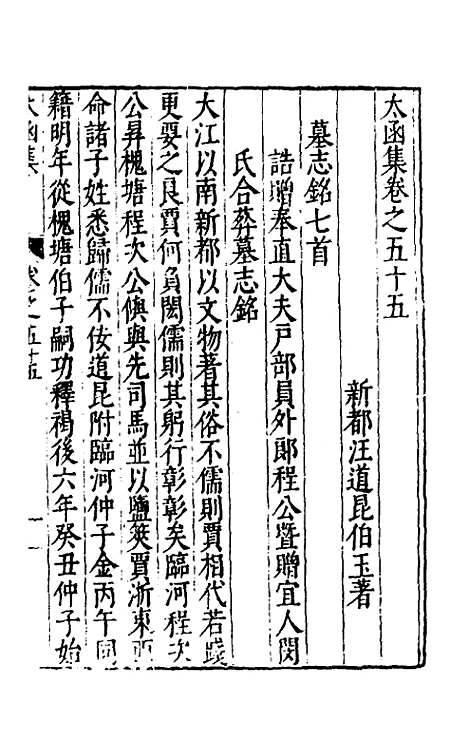 太函集卷之五十五
新都汪道昆伯玉著
墓志銘七首
誥贈奉直大夫戶部員外郎程公暨贈宜人閔
氏合葬墓志銘
大江以南新都以文物著其俗不儒則賈相代若踐
更要之良賈何負閎儒則其躬行彰彰矣臨河程次
公昇槐塘程次公僎與先司馬並以鹽筴賈浙東西
命諸子姓悉歸儒不佞道昆附臨河仲子金丙午同
籍明年從槐塘伯子嗣功釋褐後六年癸丑仲子始
太函集
卷之五十五
一